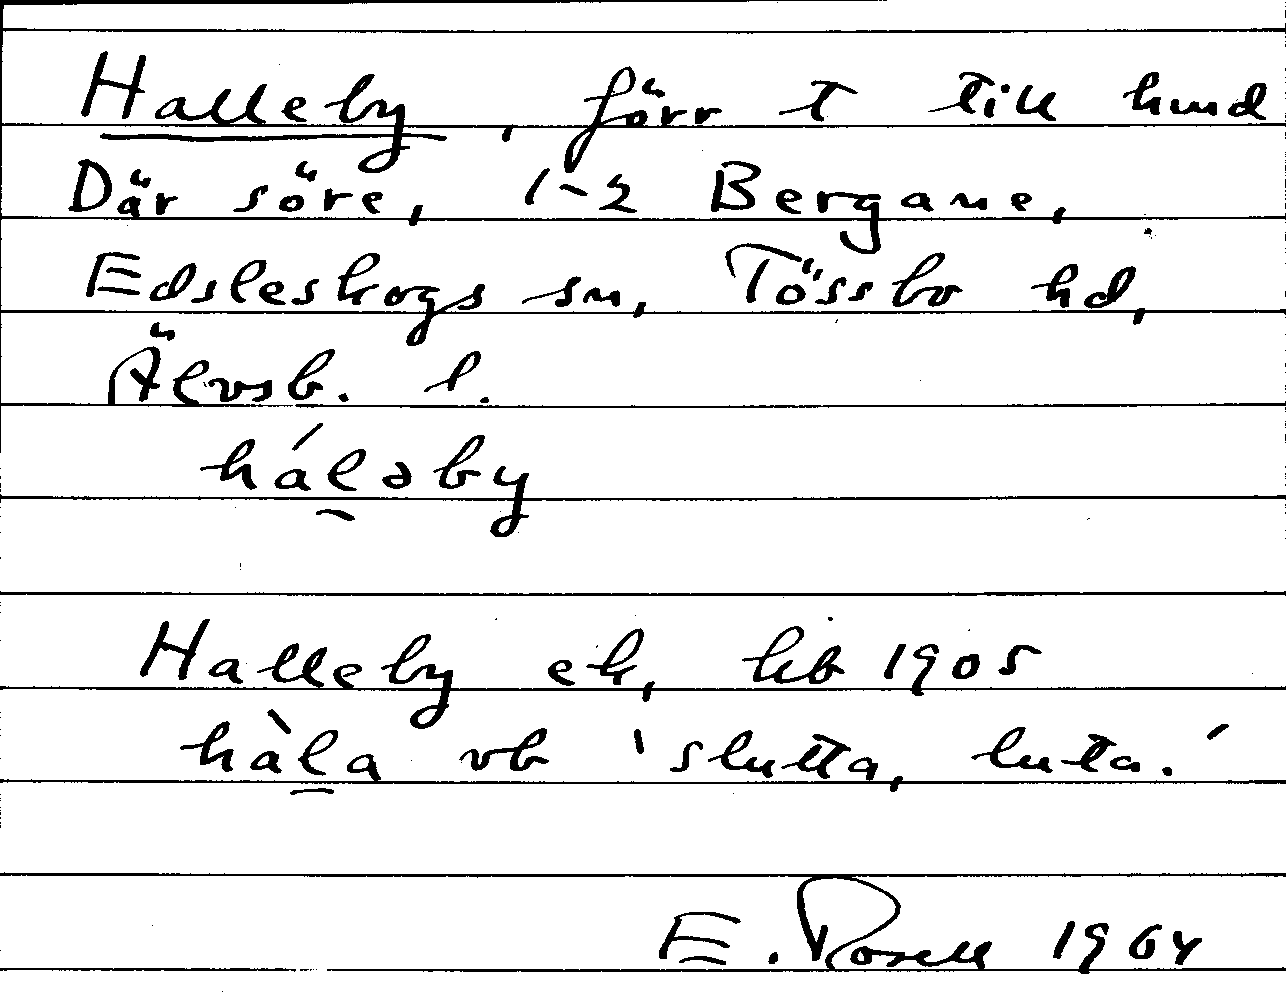 Halleby, förr t till hmd
Där söre, 1-2 Bergane,
Edsleskogs sn, Tössbo hd,
Älvsb. l.
hál̯əby
Halleby ek, lib 1905
hàl̯a vb 'slutta, luta.'
E. Rosell 1964